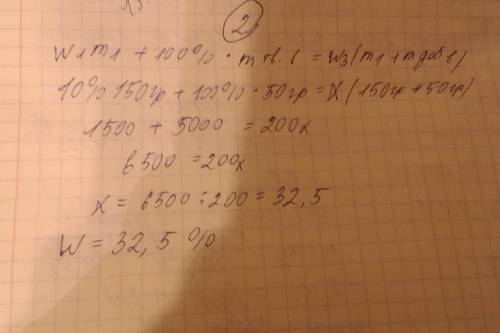 2
W₁m₁ + 100% · m тв. в = W₃(m₁ + m доб в)
10% 150гр + 100% · 50гр = X (150гр + 50гр)
1500 + 5000 = 200x
6500 = 200x
x = 6500 : 200 = 32,5
W = 32,5 %